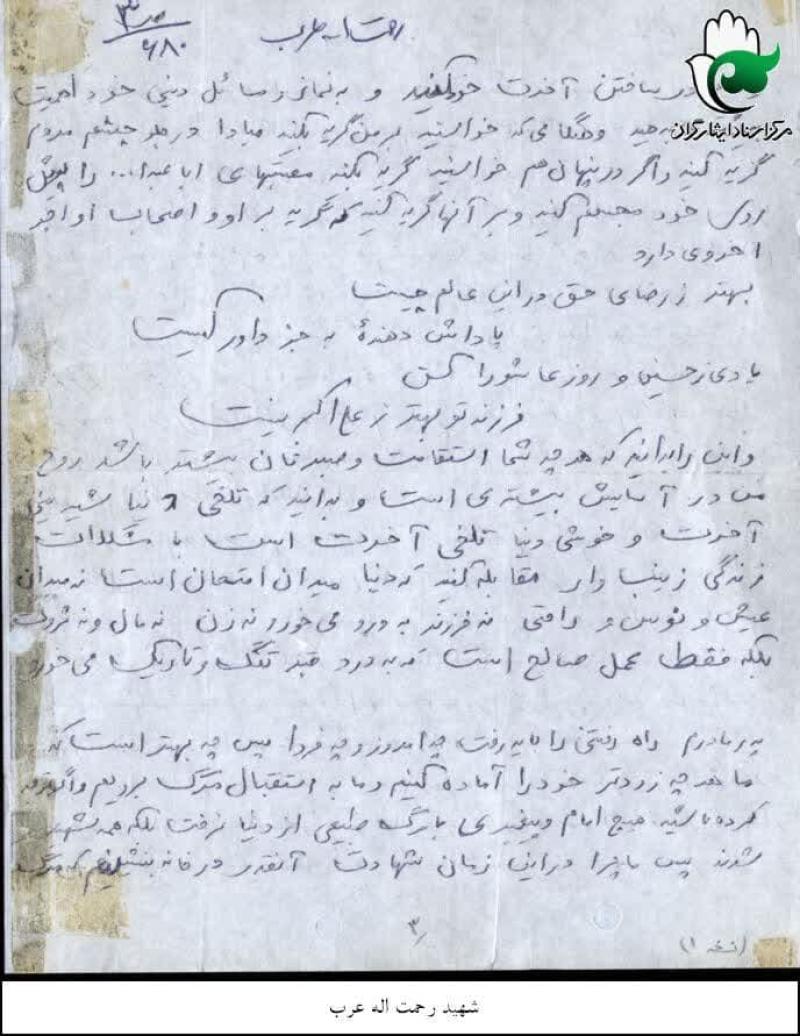 ص ۳
۶۸۰
رحمت اله عرب
مرکز اسناد ایثارگران
در ساختن آخرت خود کنید و به نماز و مسائل دینی خود اهمیت
بدهید و هنگامی که خواستید بر من گریه بکنید مبادا در جلو چشم مردم
گریه کنید و اگر در پنهان هم خواستید گریه بکنید مصیبتهای ابا عبدا... را پیش
روی خود مجسم کنید و بر آنها گریه کنید که گریه بر او و اصحاب او اجر
اخروی دارد
بهتر ز رضای حق در این عالم چیست
پاداش دهندهٔ به جز داور کیست
یادی ز حسین و روز عاشورا کن
فرزند تو بهتر ز علی اکبر نیست
و این را بدانید که هر چه شما استقامت و صبرتان بیشتر باشد روح
من در آسایش بیشتری است و بدانید که تلخی دنیا شیرینی
آخرت و خوشی دنیا تلخی آخرت است با مشکلات
زندگی زینب وار مقابله کنید که دنیا میدان امتحان است نه میدان
عیش و نوش و راحتی نه فرزند به درد می خورد نه زن نه مال و نه ثروت
بلکه فقط عمل صالح است که به درد قبر تنگ و تاریک می خورد
پدر مادرم راه رفتنی را باید رفت چه امروز و چه فردا پس چه بهتر است که
ما هر چه زودتر خود را آماده کنیم و ما به استقبال مرگ برویم و اگر توجه
کرده باشید هیچ امام و پیغمبری با مرگ طبیعی از دنیا نرفت بلکه همه شهید
شدند پس ما چرا در این زمان شهادت آنقدر در خانه بنشینیم که مرگ
۳
(نسخه ۱)
شهید رحمت اله عرب